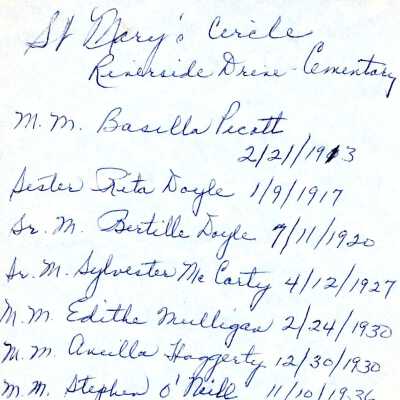 St Mary's Cercle
Riverside Drive - Cementary
M. M. Basilla Picott
2/21/1913
Sister Rita Doyle 1/9/1917
Sr. M. Bertille Doyle 7/11/1920
Sr. M. Sylvester Mc Carty 4/12/1927
M. M. Edithe Mulligan 2/24/1930
M. M. Ancilla Haggerty 12/30/1930
M. M. Stephen O'Neill 11/10/1936